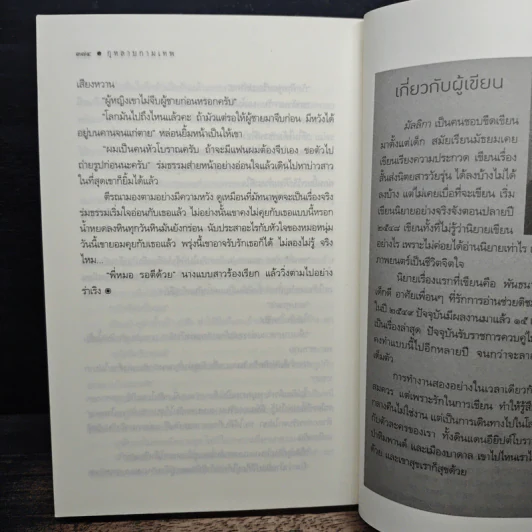 ๓๗๔ ● กุหลาบกามเทพ
เสียงหวาน
"ผู้หญิงเขาไม่จีบผู้ชายก่อนหรอกครับ"
"โลกมันไปถึงไหนแล้วคะ ถ้ามัวแต่รอให้ผู้ชายมาจีบก่อน มีหวังได้
อยู่บนคานจนแก่ตาย" หล่อนยิ้มหน้าเป็นให้เขา
"ผมเป็นคนหัวโบราณครับ ถ้าจะมีแฟนผมต้องจีบเอง ขอตัวไป
ถ่ายรูปก่อนนะครับ" ร่มธรรมส่ายหน้าอย่างอ่อนใจแล้วเดินไปหาบ่าวสาว
ในที่สุดเขาก็ยิ้มได้แล้ว
ตีรณามองตามอย่างมีความหวัง ดูเหมือนที่มัทนาพูดจะเป็นเรื่องจริง
ร่มธรรมเริ่มใจอ่อนกับเธอแล้ว ไม่อย่างนั้นเขาคงไม่คุยกับเธอแบบนี้หรอก
น้ำหยดลงหินทุกวันหินมันยังกร่อน นับประสาอะไรกับหัวใจของหมอหนุ่ม
วันนี้เขายอมคุยกับเธอแล้ว พรุ่งนี้เขาอาจรับรักเธอก็ได้ ไม่ลองไม่รู้ จริง
ไหม...
"พี่หมอ รอตีด้วย" นางแบบสาวร้องเรียก แล้ววิ่งตามไปอย่าง
ร่าเริง
เกี่ยวกับผู้เขียน
มัลลิกา เป็นคนชอบขีดเขียน
มาตั้งแต่เด็ก สมัยเรียนมัธยมเคย
เขียนเรียงความประกวด เขียนเรื่อง
สั้นส่งนิตยสารวัยรุ่น ได้ลงบ้างไม่ได้
ลงบ้าง แต่ไม่เคยเบื่อที่จะเขียน เริ่ม
เขียนนิยายอย่างจริงจังตอนปลายปี
๒๕๔๘ เขียนทั้งที่ไม่รู้ว่านิยายเขียน
อย่างไร เพราะไม่ค่อยได้อ่านนิยายเท่าไร
ภาพยนตร์เป็นชีวิตจิตใจ
นิยายเรื่องแรกที่เขียนคือ
เด็กดี อาศัยเพื่อนๆ ที่รักการอ่านช่วยติชม
ในปี ๒๕๔๙ ปัจจุบันมีผลงานมาแล้ว ๑๕
เป็นเรื่องล่าสุด ปัจจุบันรับราชการควบคู่
คงทำแบบนี้ไปอีกหลายปี จนกว่าจะ
เต็มตัว
การทำงานสองอย่างในเวลาเดียว
สมควร แต่เพราะรักในการเขียน ทำให้รู้
กลางคืนไม่ใช่งาน แต่เป็นการเดินทางไปใน
กับตัวละครของเรา ทั้งดินแดนอียิปต์
ป่าหิมพานต์ และเมืองบาดาล เขาไปไหนเรา
ด้วย และเขาสุขเราก็สุขด้วย